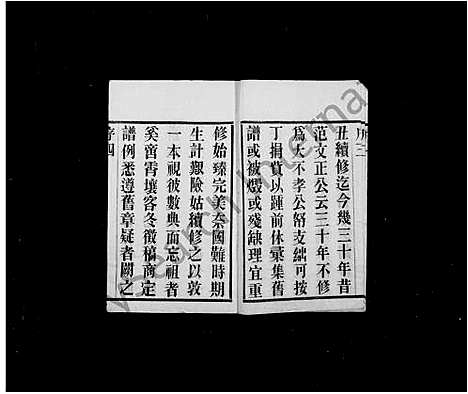 序三
丑續修迄今幾三十年昔
范文正公云三十年不修
為大不孝公帑支絀可按
丁捐貲以踵前休彙集舊
譜或被燬或殘缺理宜重
修始臻完美奈國難時期
生計艱險姑續修之以敦
一本視彼數典而忘祖者
奚啻霄壤客冬徵稿商定
譜例悉遵舊章疑者闕之
序四